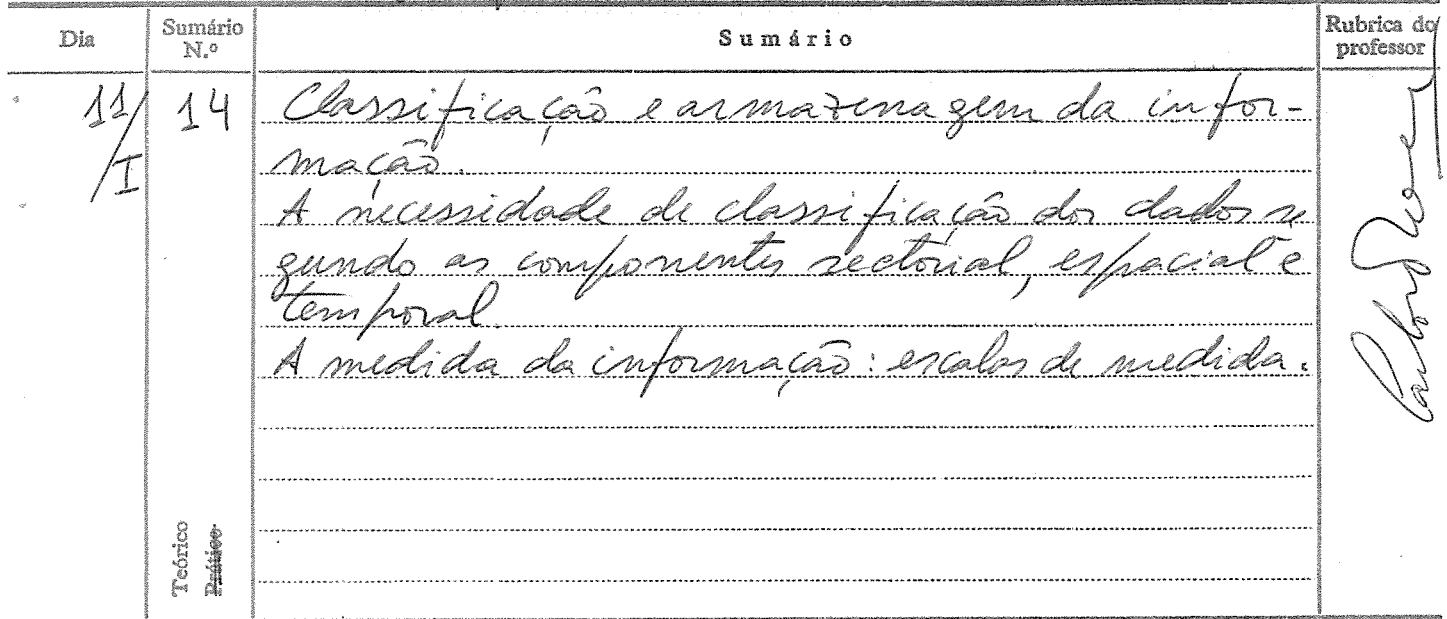 Dia
Sumário N.º
Sumário
Rubrica do professor
11/I
14
Classificação e armazenagem da infor-
mação.
A necessidade de classificação dos dados se
gundo as componentes sectorial, espacial e
temporal.
A medida da informação: escalas de medida.
Teórico
Prático